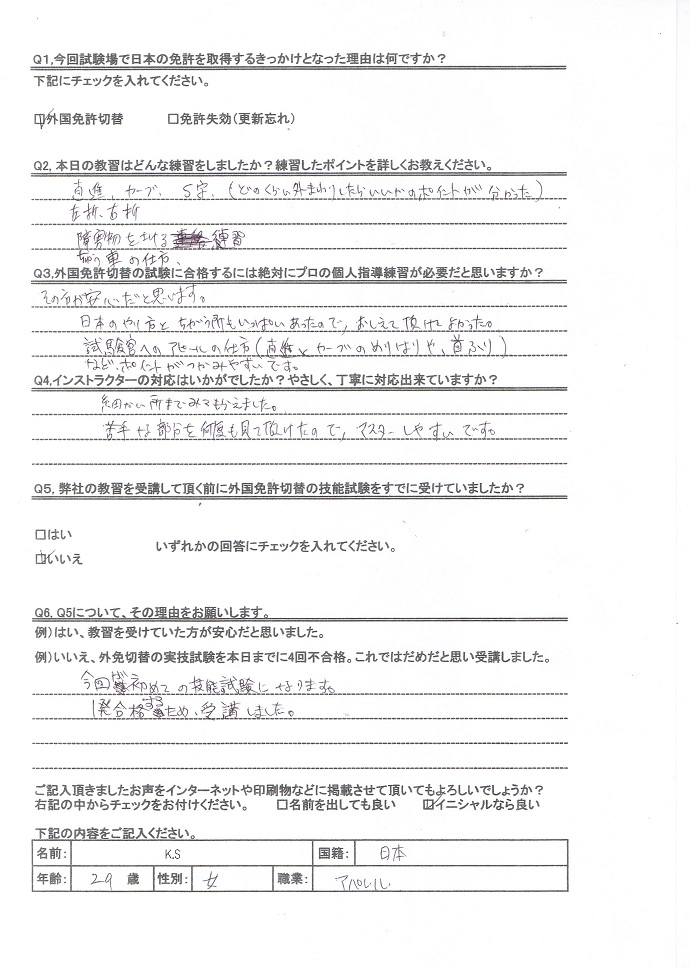 Q1,今回試験場で日本の免許を取得するきっかけとなった理由は何ですか？
下記にチェックを入れてください。
☑外国免許切替 □免許失効(更新忘れ)
Q2, 本日の教習はどんな練習をしましたか？練習したポイントを詳しくお教えください。
直進、カーブ、S字、(どのくらい外まわりしたらいいかのポイントが分かった)
左折、右折
障害物をさける 練習
車の仕方、
Q3,外国免許切替の試験に合格するには絶対にプロの個人指導練習が必要だと思いますか？
その方が安心だと思います。
日本のやり方とちがう所もいっぱいあったので、おしえて頂けてよかった。
試験官へのアピールの仕方(直進とカーブのめりはりや、首ふり)
などポイントがつかみやすいです。
Q4,インストラクターの対応はいかがでしたか？やさしく、丁寧に対応出来ていますか？
細かい所までみてもらえました。
苦手な部分を何度も見て頂けたので、マスターしやすいです。
Q5, 弊社の教習を受講して頂く前に外国免許切替の技能試験をすでに受けていましたか？
□はい
☑いいえ いずれかの回答にチェックを入れてください。
Q6, Q5について、その理由をお願いします。
例)はい、教習を受けていた方が安心だと思いました。
例)いいえ、外免切替の実技試験を本日までに4回不合格。これではだめだと思い受講しました。
今回が初めての技能試験になります。
1発合格するため、受講しました。
ご記入頂きましたお声をインターネットや印刷物などに掲載させて頂いてもよろしいでしょうか？
右記の中からチェックをお付けください。 □名前を出しても良い ☑イニシャルなら良い
下記の内容をご記入ください。
名前: K.S 国籍: 日本
年齢: 29 歳 性別: 女 職業: アパレル